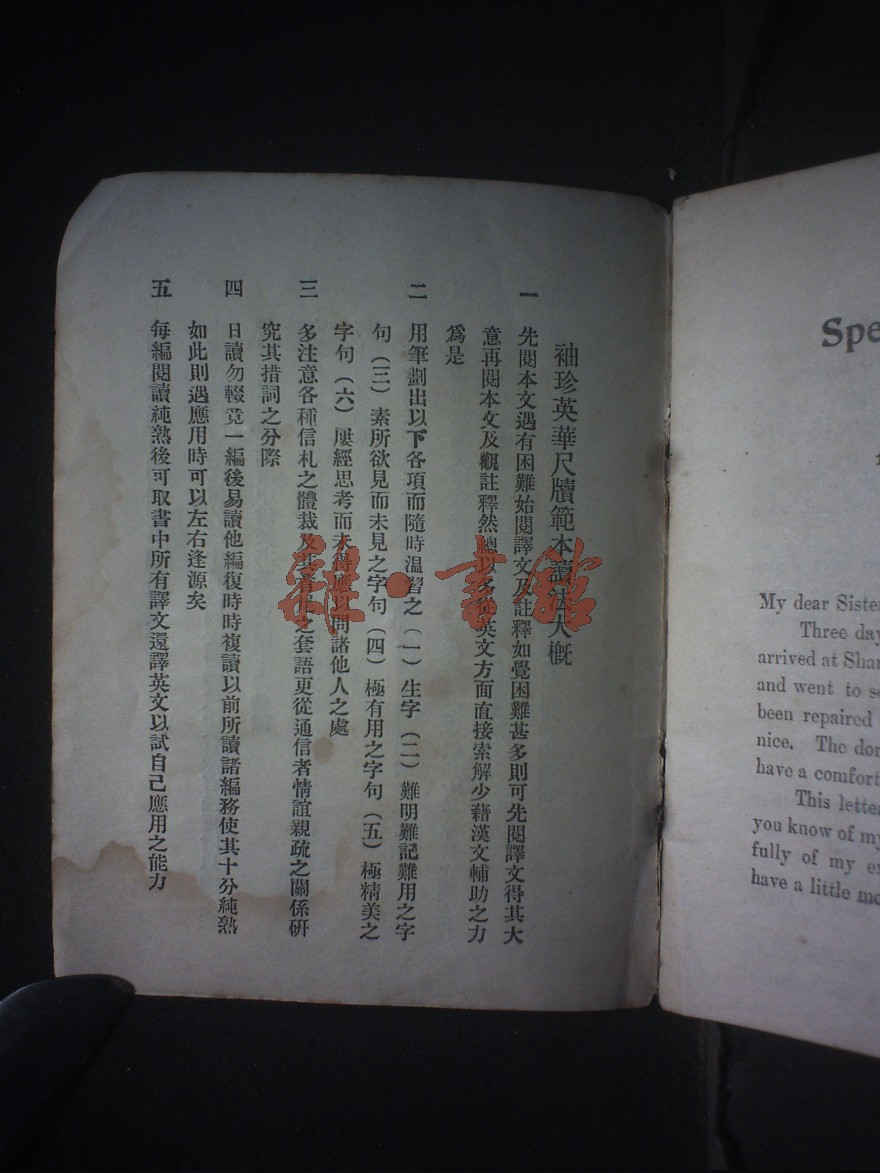 袖珍英華尺牘範本讀法大槪
一 先閱本文遇有困難始閱譯文及註釋如覺困難甚多則可先閱譯文得其大
意再閱本文及觀註釋然總以多從英文方面直接索解少藉漢文輔助之力
爲是
二 用筆劃出以下各項而隨時溫習之（一）生字（二）難明難記難用之字
句（三）素所欲見而未見之字句（四）極有用之字句（五）極精美之
字句（六）屢經思考而未得應以問諸他人之處
三 多注意各種信札之體裁及其首尾之套語更從通信者情誼親疏之關係研
究其措詞之分際
四 日讀勿輟竟一編後易讀他編復時時複讀以前所讀諸編務使其十分純熟
如此則遇應用時可以左右逢源矣
五 每編閱讀純熟後可取書中所有譯文還譯英文以試自己應用之能力
Spe
My dear Sister
Three day
arrived at Shan
and went to se
been repaired
nice. The dor
have a comfort
This letter
you know of my
fully of my ex
have a little mo
書館